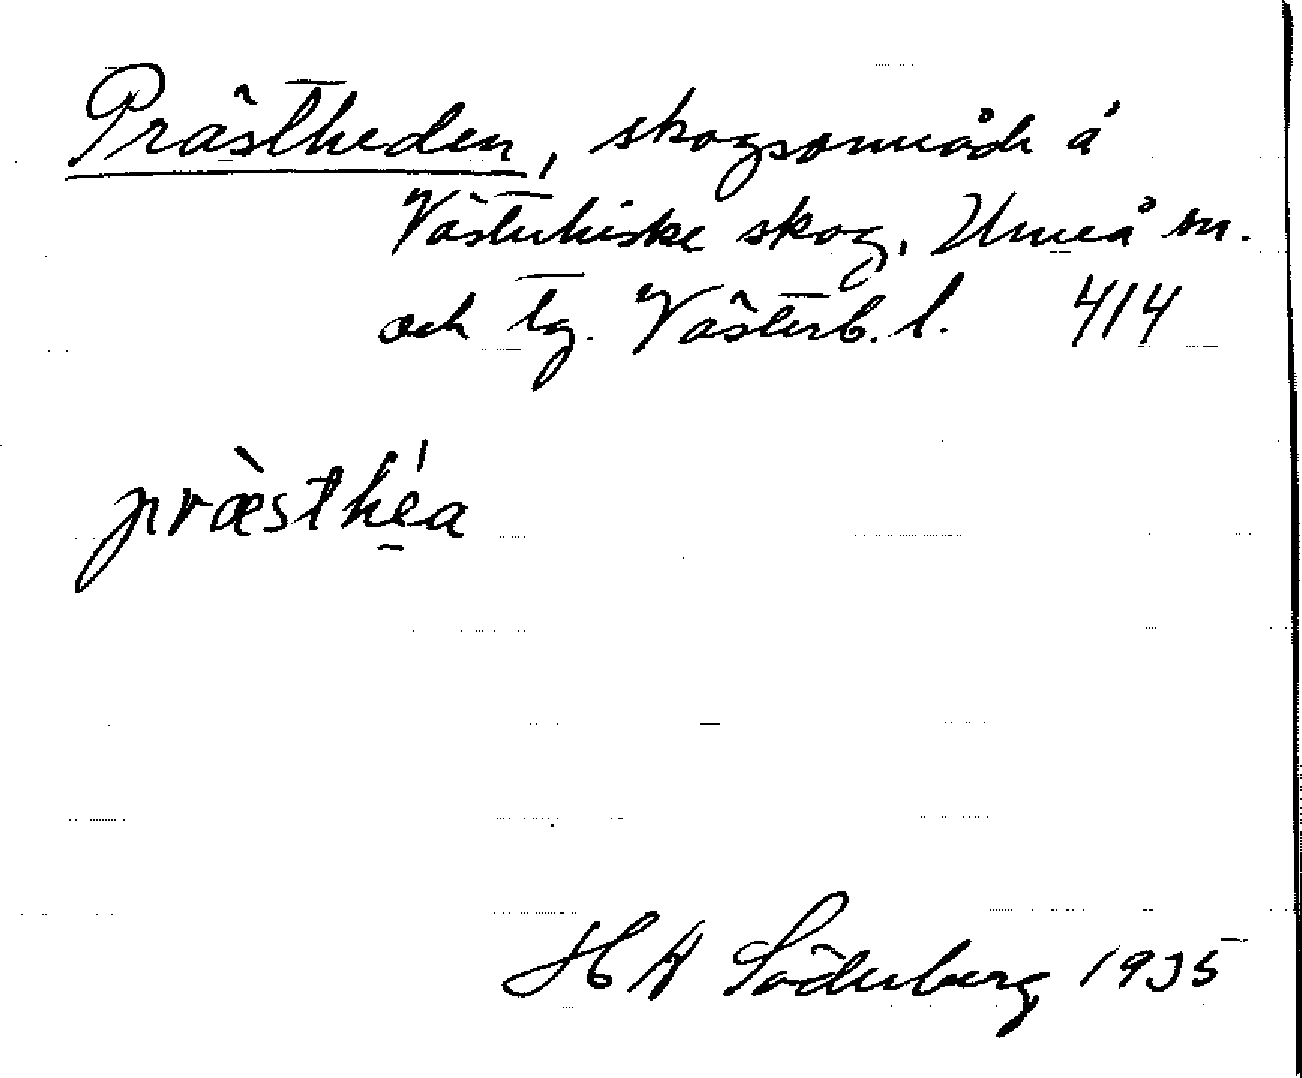 Prästheden, skogsområde å
Västerhiske skog, Umeå sn.
och tg. Västerb. l. 414
præsthéa
H A Söderberg 1935